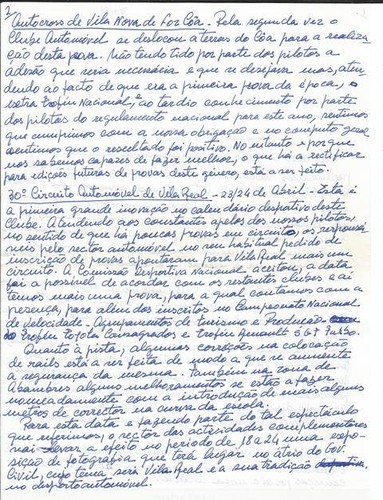 2
Autocross de Vila Nova de Foz Côa. Pela segunda vez o
Clube Automóvel se deslocou a terras do Côa para a realiza
ção desta prova. Não tendo tido por parte dos pilotos a
adesão que seria necessária e que se desejava mas, aten
dendo ao facto de que era a primeira prova da época, o
extra troféu Nacional, ao tardio conhecimento por parte
dos pilotos do regulamento nacional para este ano, sentimos
que cumprimos com a nossa obrigação e no computo geral
sentimos que o resultado foi positivo. No entanto e por que
nos sabemos capazes de fazer melhor, o que há a rectificar
para edições futuras de provas deste género, está a ser feito.
30º Circuito Automóvel de Vila Real - 23/24 de Abril - Esta é
a primeira grande inovação no calendário desportivo deste
Clube. Atendendo aos constantes apelos dos nossos pilotos,
no sentido de que há poucas provas em circuito, os responsá
veis pelo sector automóvel no seu habitual pedido de
inscrição de provas apontaram para Vila Real mais um
circuito. A Comissão Desportiva Nacional aceitou, a data
foi a possível de acordar com os restantes clubes e aí
temos mais uma prova, para a qual contamos com a
presença, para além dos inscritos no Campeonato Nacional
de Velocidade - Agrupamentos de turismo e Produção
do troféu toyota Caixagrados e troféu Renault 5 GT Turbo.
Quanto à pista, algumas correções na colocação
de rails está a ser feita de modo a que se aumente
a segurança da mesma. Também na zona de
Abambres alguns melhoramentos se estão a fazer
nomeadamente com a introdução de mais alguns
metros de corrector na curva da escola.
Para esta data e fazendo parte do tal espectáculo
que referimos, o sector das actividades complementares
vai levar a efeito no período de 18 a 24 uma expo
sição de fotografia que terá lugar no átrio do Gov.
Civil, cujo tema será Vila Real e a sua tradição
no desporto automóvel.